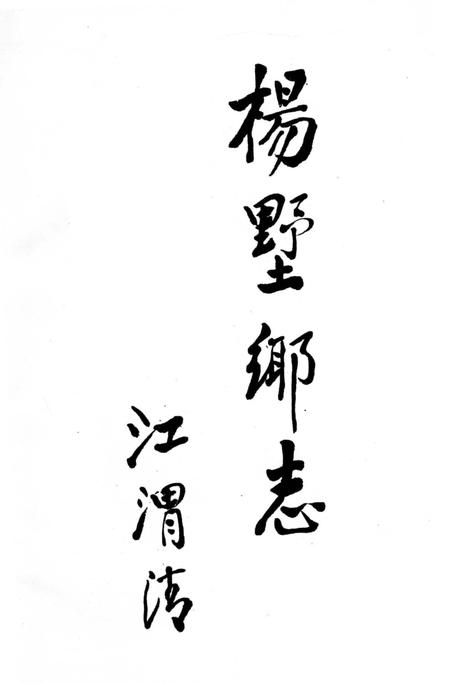 楊墅鄉志
江渭清